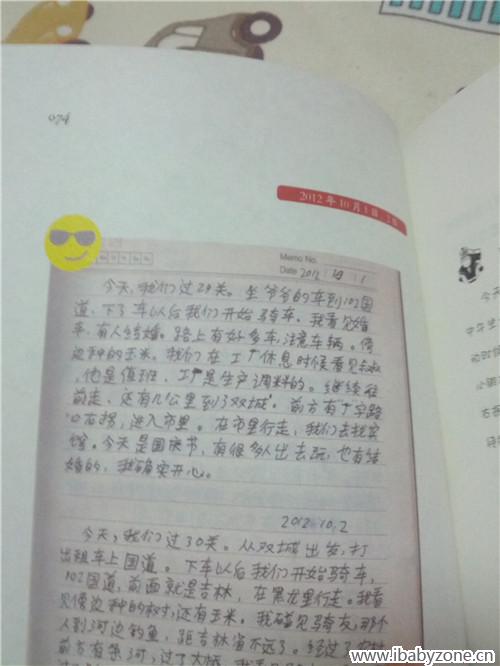 074
2012年10月1日
Memo No.
Date 2012 10 1
今天,我们过29关。坐爷爷的车到102国
道,下了车以后我们开始骑车。我看见婚
车,有人结婚。路上有好多车,注意车辆。俩
边种的玉米。我们在工厂休息时候看见叔叔
,他是值班,工厂是生产调料的。继续往
前走,还有几公里到了双城。前方有"十"字路
口右拐,进入市里。在市里行走,我们去找宾
馆。今天是国庆节,有很多人出去玩,也有结
婚的,我确实开心。
2012.10.2
今天,我们过30关。从双城出发,打
出租车上国道。下车以后我们开始骑车,
102国道,前面就是吉林,在黑龙里行走。我看
见俩边种的树,还有玉米。我碰见骑友,那个
人到河边钓鱼,距吉林省不远了。经过了
前方有条河,过了大桥,我看
www.ibabyzone.cn